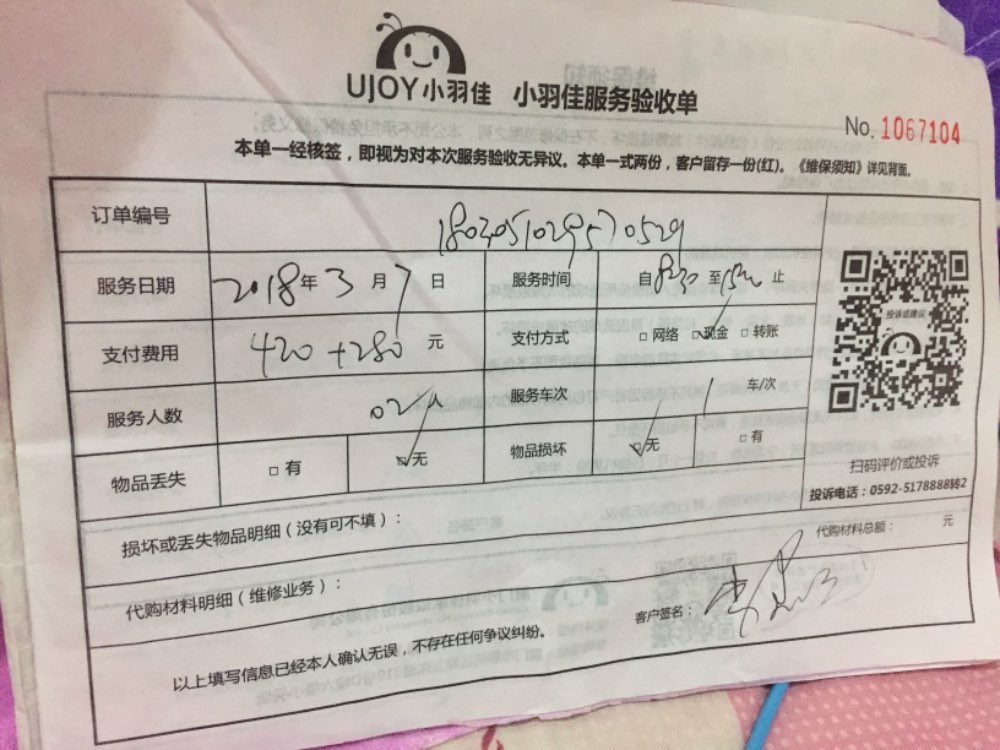 UJOY小羽佳 小羽佳服务验收单
No. 1067104
本单一经核签，即视为对本次服务验收无异议。本单一式两份，客户留存一份(红)。《维保须知》详见背面。
订单编号 1803051029570529
服务日期 2018年3月7日 服务时间 自8:30至 止
支付费用 420+280元 支付方式 □网络 □现金 □转账
服务人数 02人 服务车次 / 车/次
物品丢失 □有 ☑无 物品损坏 ☑无 □有
投诉或建议
扫码评价或投诉
投诉电话：0592-5178888转2
损坏或丢失物品明细（没有可不填）：
代购材料总额： 元
代购材料明细（维修业务）：
客户签名：
以上填写信息已经本人确认无误，不存在任何争议纠纷。